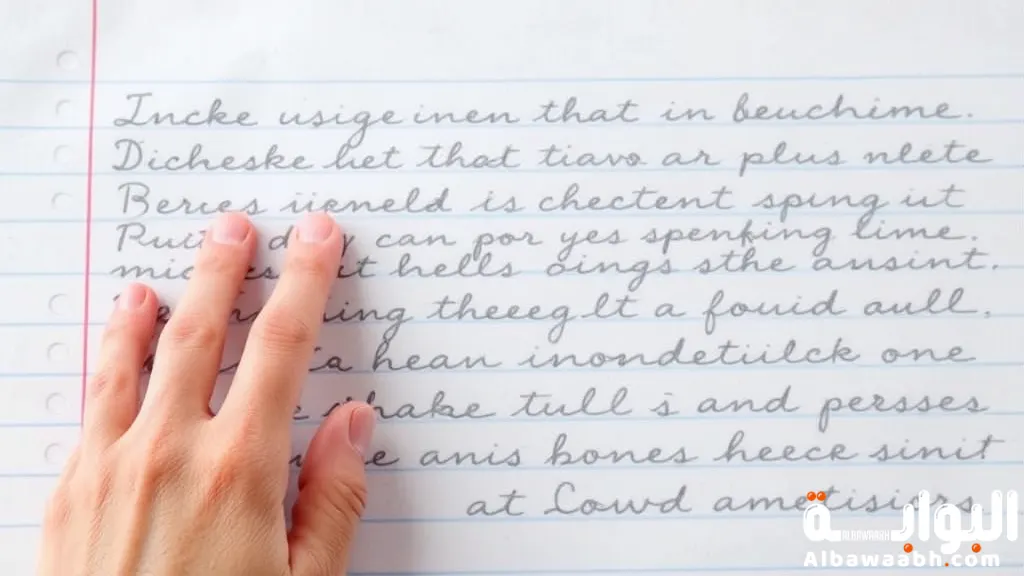 Incke usige inen that in beuchime.
Dicheske het that tiavo ar plus nlete
Berces iieneld is chectent spung ut
can por yes spenking lime.
it hells oings sthe ansint.
theeeg lt a fouid aull.
hean inondetiilck one
tull is and persses
anis bones heece sinit
at Cowd ametisiors
البوابة
ALBAWAABH
Albawaabh.com